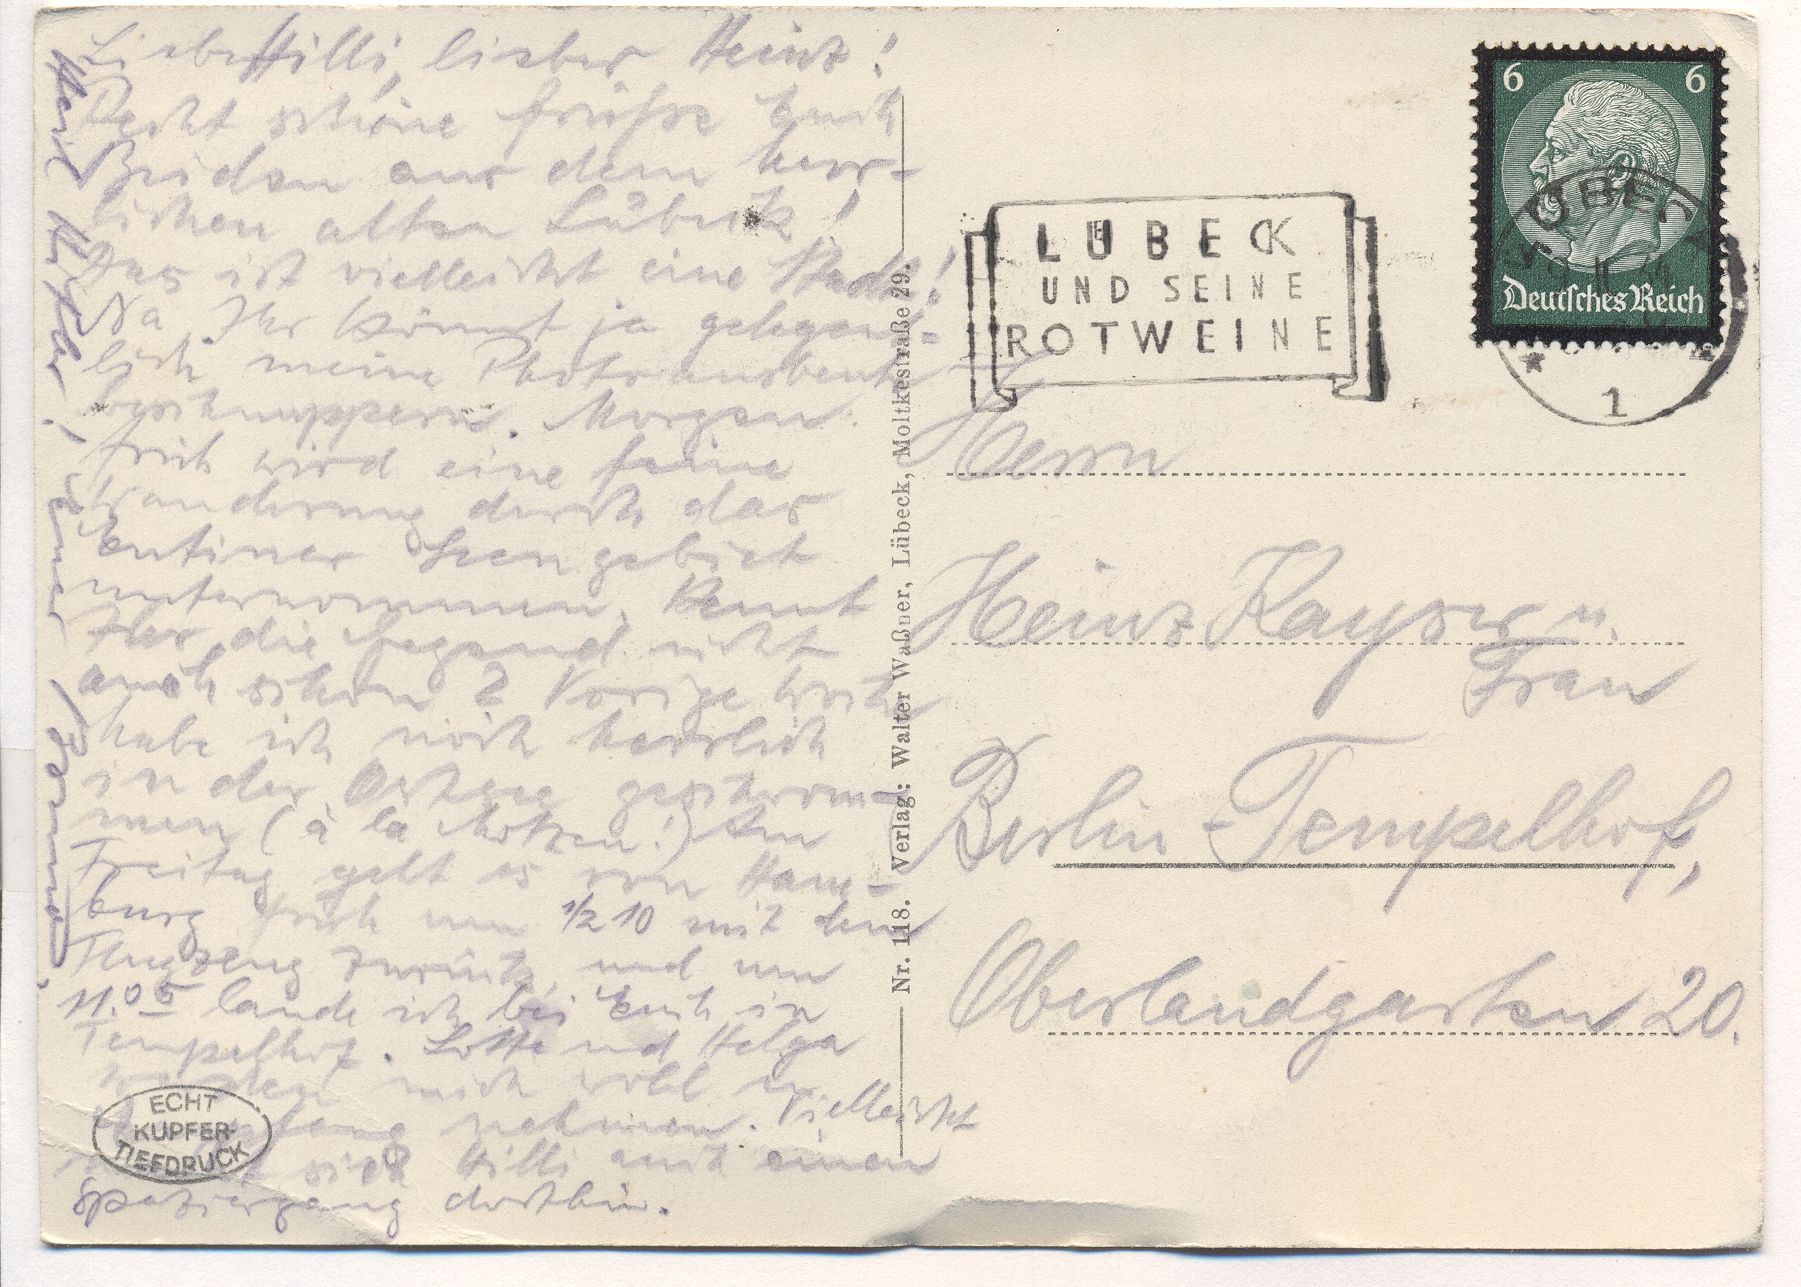 Liebe Hilli, lieber Heinz!
Recht schöne Grüsse Euch
Beiden aus dem herr-
lichen alten Lübeck!
Das ist vielleicht eine Stadt!
Na, Ihr könnt ja gelegent-
lich meine Photoausbeute
beschnuppern. Morgen
früh wird eine feine
Wanderung durch das
Eutiner Seengebiet
unternommen. Kennt
Ihr die Gegend nicht
auch schon? Vorige Woche
habe ich noch herrlich
in der Ostsee geschwom-
men (à la Motzen!) Am
Freitag geht es von Ham-
burg früh um 1/2 10 mit dem
Flugzeug zurück, und um
11.05 lande ich bei Euch in
Tempelhof. Lotte und Helga
werden mich wohl in
Empfang nehmen. Vielleicht
macht sich Hilli auch einen
Spaziergang dorthin.
Euer
ECHT
KUPFER-
TIEFDRUCK
Nr. 118. Verlag: Walter Waßner, Lübeck, Moltkestraße 29.
LÜBECK
UND SEINE
ROTWEINE
6 6
Deutsches Reich
LÜBECK
1
Herrn
Heinz Kayser u.
Frau
Berlin-Tempelhof,
Oberlandgarten 20.